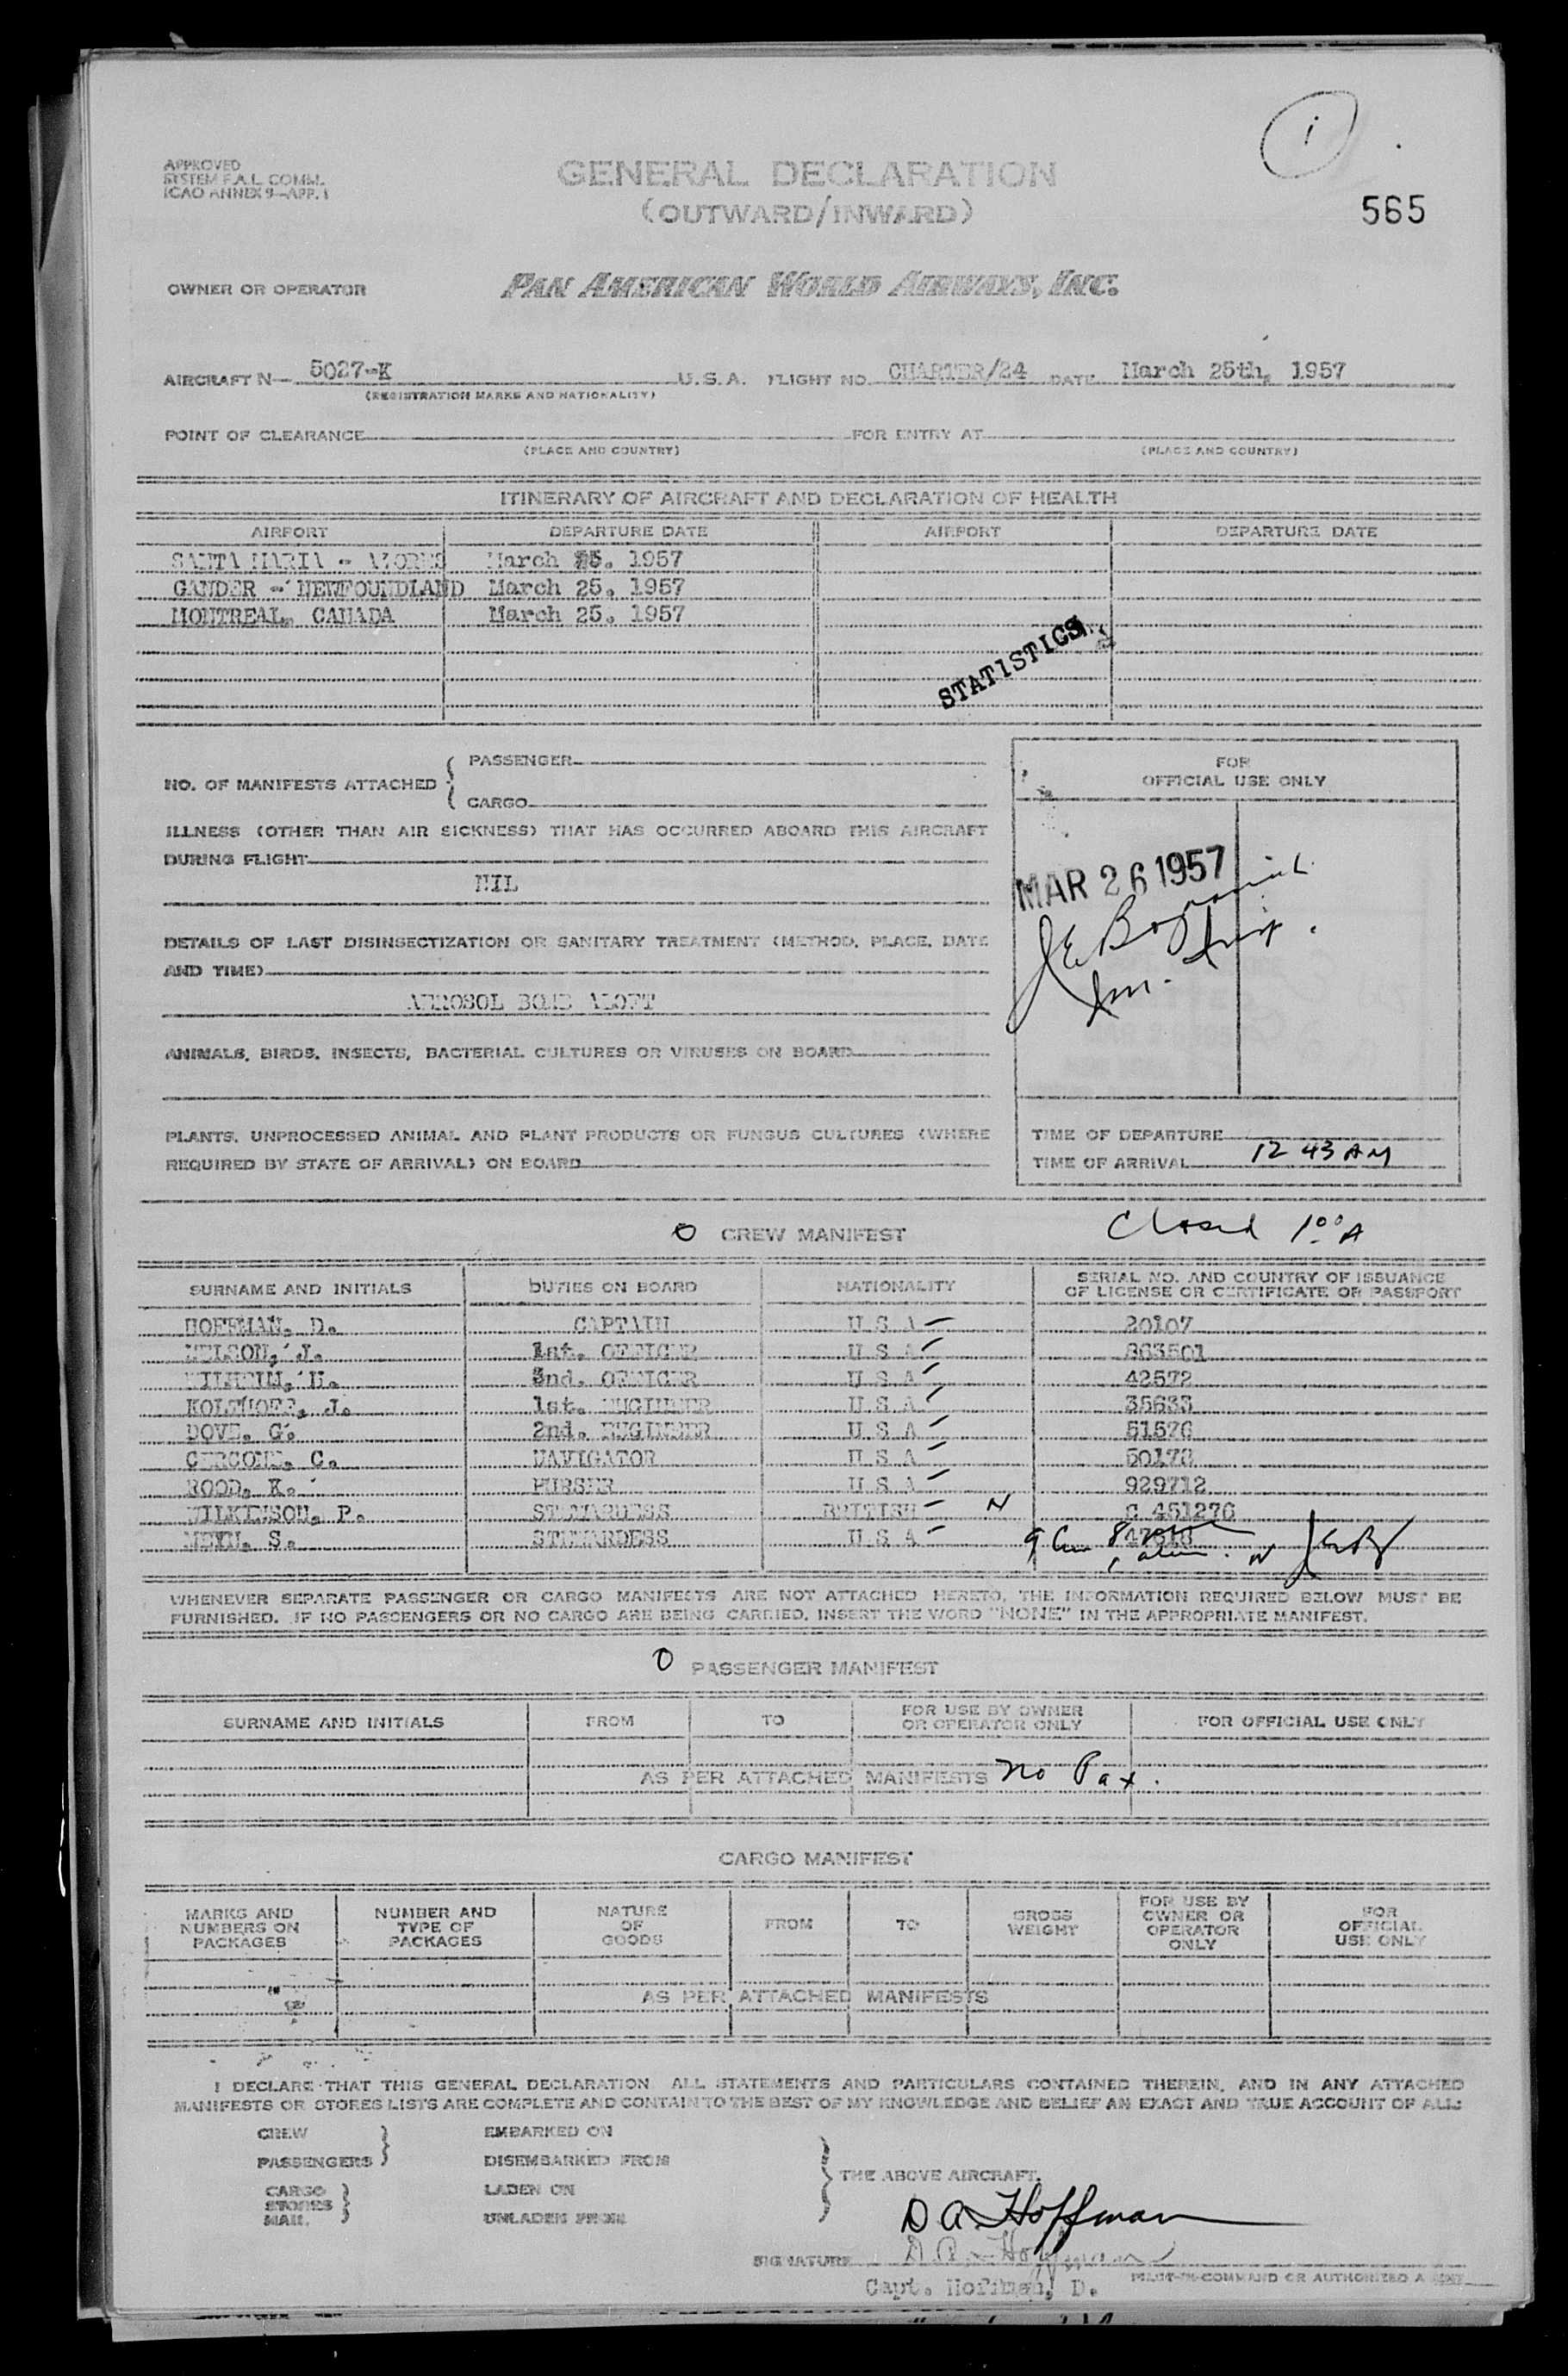 i
APPROVED
SYSTEM F.A.L. COMM.
ICAO ANNEX 9—APP. 1
GENERAL DECLARATION
(OUTWARD/INWARD)
565
OWNER OR OPERATOR PAN AMERICAN WORLD AIRWAYS, INC.
AIRCRAFT N— 5027-K U.S.A. FLIGHT NO. CHARTER/24 DATE March 25th, 1957
(REGISTRATION MARKS AND NATIONALITY)
POINT OF CLEARANCE FOR ENTRY AT
(PLACE AND COUNTRY) (PLACE AND COUNTRY)
ITINERARY OF AIRCRAFT AND DECLARATION OF HEALTH
AIRPORT DEPARTURE DATE AIRPORT DEPARTURE DATE
SANTA MARIA - AZORES March 25. 1957
GANDER - NEWFOUNDLAND March 25. 1957
MONTREAL, CANADA March 25. 1957
STATISTICS
NO. OF MANIFESTS ATTACHED { PASSENGER
CARGO
FOR
OFFICIAL USE ONLY
ILLNESS (OTHER THAN AIR SICKNESS) THAT HAS OCCURRED ABOARD THIS AIRCRAFT
DURING FLIGHT
NIL
MAR 26 1957
DETAILS OF LAST DISINSECTIZATION OR SANITARY TREATMENT (METHOD, PLACE, DATE
AND TIME)
AEROSOL BOMB ALOFT
ANIMALS, BIRDS, INSECTS, BACTERIAL CULTURES OR VIRUSES ON BOARD
PLANTS, UNPROCESSED ANIMAL AND PLANT PRODUCTS OR FUNGUS CULTURES (WHERE
REQUIRED BY STATE OF ARRIVAL) ON BOARD
TIME OF DEPARTURE
TIME OF ARRIVAL 12 43 AM
O CREW MANIFEST Closed 1:00 A
SURNAME AND INITIALS DUTIES ON BOARD NATIONALITY SERIAL NO. AND COUNTRY OF ISSUANCE
OF LICENSE OR CERTIFICATE OR PASSPORT
HOFFMAN, D. CAPTAIN U S A 20107
NELSON, J. 1st. OFFICER U S A 863501
WILHELM, H. 2nd. OFFICER U S A 42572
KOLTHOFF, J. 1st. ENGINEER U S A 35633
DOVE, G. 2nd. ENGINEER U S A 51576
CERCONE, C. NAVIGATOR U S A 50178
ROOD, K. PURSER U S A 929712
WILKINSON, P. STEWARDESS BRITISH N C 451276
S. STEWARDESS U S A
WHENEVER SEPARATE PASSENGER OR CARGO MANIFESTS ARE NOT ATTACHED HERETO, THE INFORMATION REQUIRED BELOW MUST BE
FURNISHED. IF NO PASSENGERS OR NO CARGO ARE BEING CARRIED, INSERT THE WORD "NONE" IN THE APPROPRIATE MANIFEST.
O PASSENGER MANIFEST
SURNAME AND INITIALS FROM TO FOR USE BY OWNER
OR OPERATOR ONLY FOR OFFICIAL USE ONLY
AS PER ATTACHED MANIFESTS No Pax.
CARGO MANIFEST
MARKS AND
NUMBERS ON
PACKAGES NUMBER AND
TYPE OF
PACKAGES NATURE
OF
GOODS FROM TO GROSS
WEIGHT FOR USE BY
OWNER OR
OPERATOR
ONLY FOR
OFFICIAL
USE ONLY
AS PER ATTACHED MANIFESTS
I DECLARE THAT THIS GENERAL DECLARATION ALL STATEMENTS AND PARTICULARS CONTAINED THEREIN, AND IN ANY ATTACHED
MANIFESTS OR STORES LISTS ARE COMPLETE AND CONTAIN TO THE BEST OF MY KNOWLEDGE AND BELIEF AN EXACT AND TRUE ACCOUNT OF ALL:
CREW EMBARKED ON
PASSENGERS DISEMBARKED FROM
THE ABOVE AIRCRAFT.
CARGO LADEN ON
STORES
MAIL UNLADEN FROM
D A Hoffman
SIGNATURE D A Hoffman
PILOT-IN-COMMAND OR AUTHORIZED AGENT
Capt. Hoffman, D.